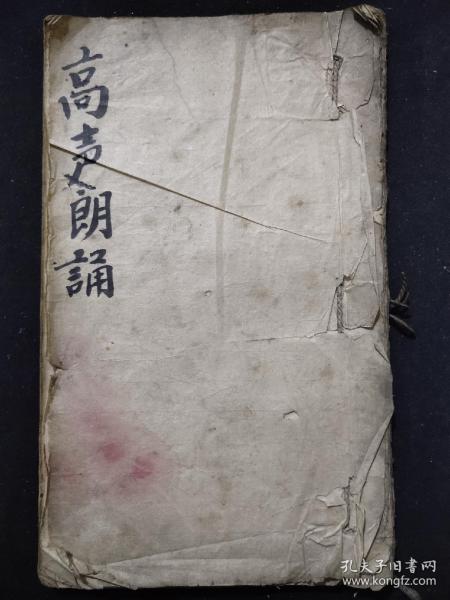 高声朗誦
孔夫子旧书网
www.kongfz.com